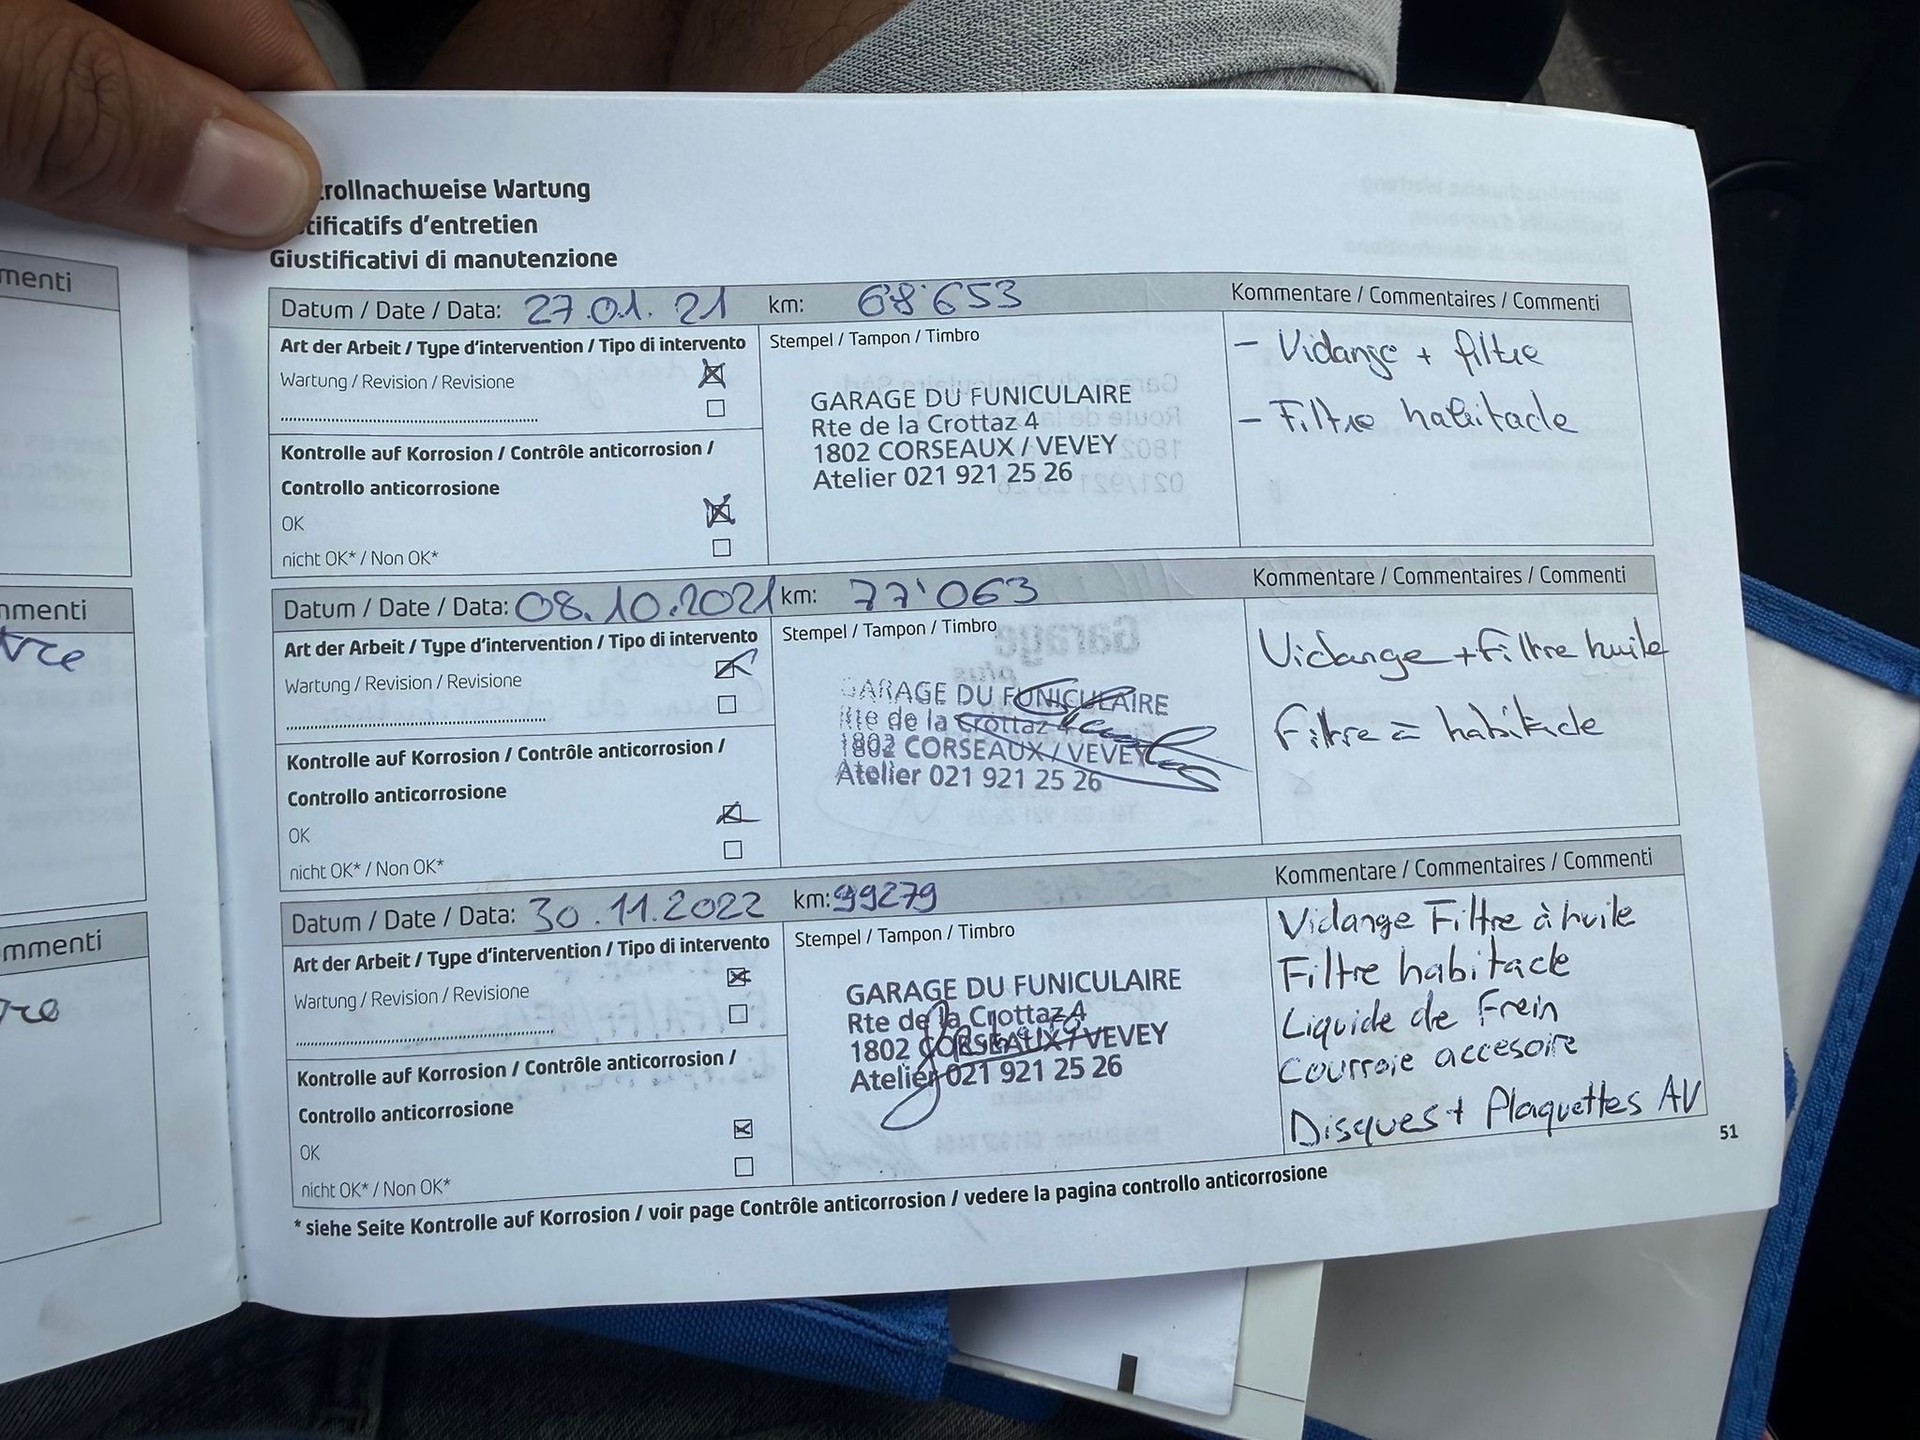 menti
nmenti
tre
mmenti
re
rollnachweise Wartung
tificatifs d'entretien
Giustificativi di manutenzione
Datum / Date / Data: 27.01.21 km: 68'653 Kommentare / Commentaires / Commenti
Art der Arbeit / Type d'intervention / Tipo di intervento
Wartung / Revision / Revisione
Kontrolle auf Korrosion / Contrôle anticorrosion /
Controllo anticorrosione
OK
nicht OK* / Non OK*
Stempel / Tampon / Timbro
GARAGE DU FUNICULAIRE
Rte de la Crottaz 4
1802 CORSEAUX / VEVEY
Atelier 021 921 25 26
- Vidange + filtre
- Filtre habitacle
Datum / Date / Data: 08.10.2021 km: 77'063 Kommentare / Commentaires / Commenti
Art der Arbeit / Type d'intervention / Tipo di intervento
Wartung / Revision / Revisione
Kontrolle auf Korrosion / Contrôle anticorrosion /
Controllo anticorrosione
OK
nicht OK* / Non OK*
Stempel / Tampon / Timbro
GARAGE DU FUNICULAIRE
Rte de la Crottaz 4
1802 CORSEAUX / VEVEY
Atelier 021 921 25 26
Vidange + Filtre huile
Filtre à habitacle
Datum / Date / Data: 30.11.2022 km: 99279 Kommentare / Commentaires / Commenti
Art der Arbeit / Type d'intervention / Tipo di intervento
Wartung / Revision / Revisione
Kontrolle auf Korrosion / Contrôle anticorrosion /
Controllo anticorrosione
OK
nicht OK* / Non OK*
Stempel / Tampon / Timbro
GARAGE DU FUNICULAIRE
Rte de la Crottaz 4
1802 CORSEAUX / VEVEY
Atelier 021 921 25 26
Vidange Filtre à huile
Filtre habitacle
Liquide de Frein
Courroie accesoire
Disques + Plaquettes AV
* siehe Seite Kontrolle auf Korrosion / voir page Contrôle anticorrosion / vedere la pagina controllo anticorrosione
51